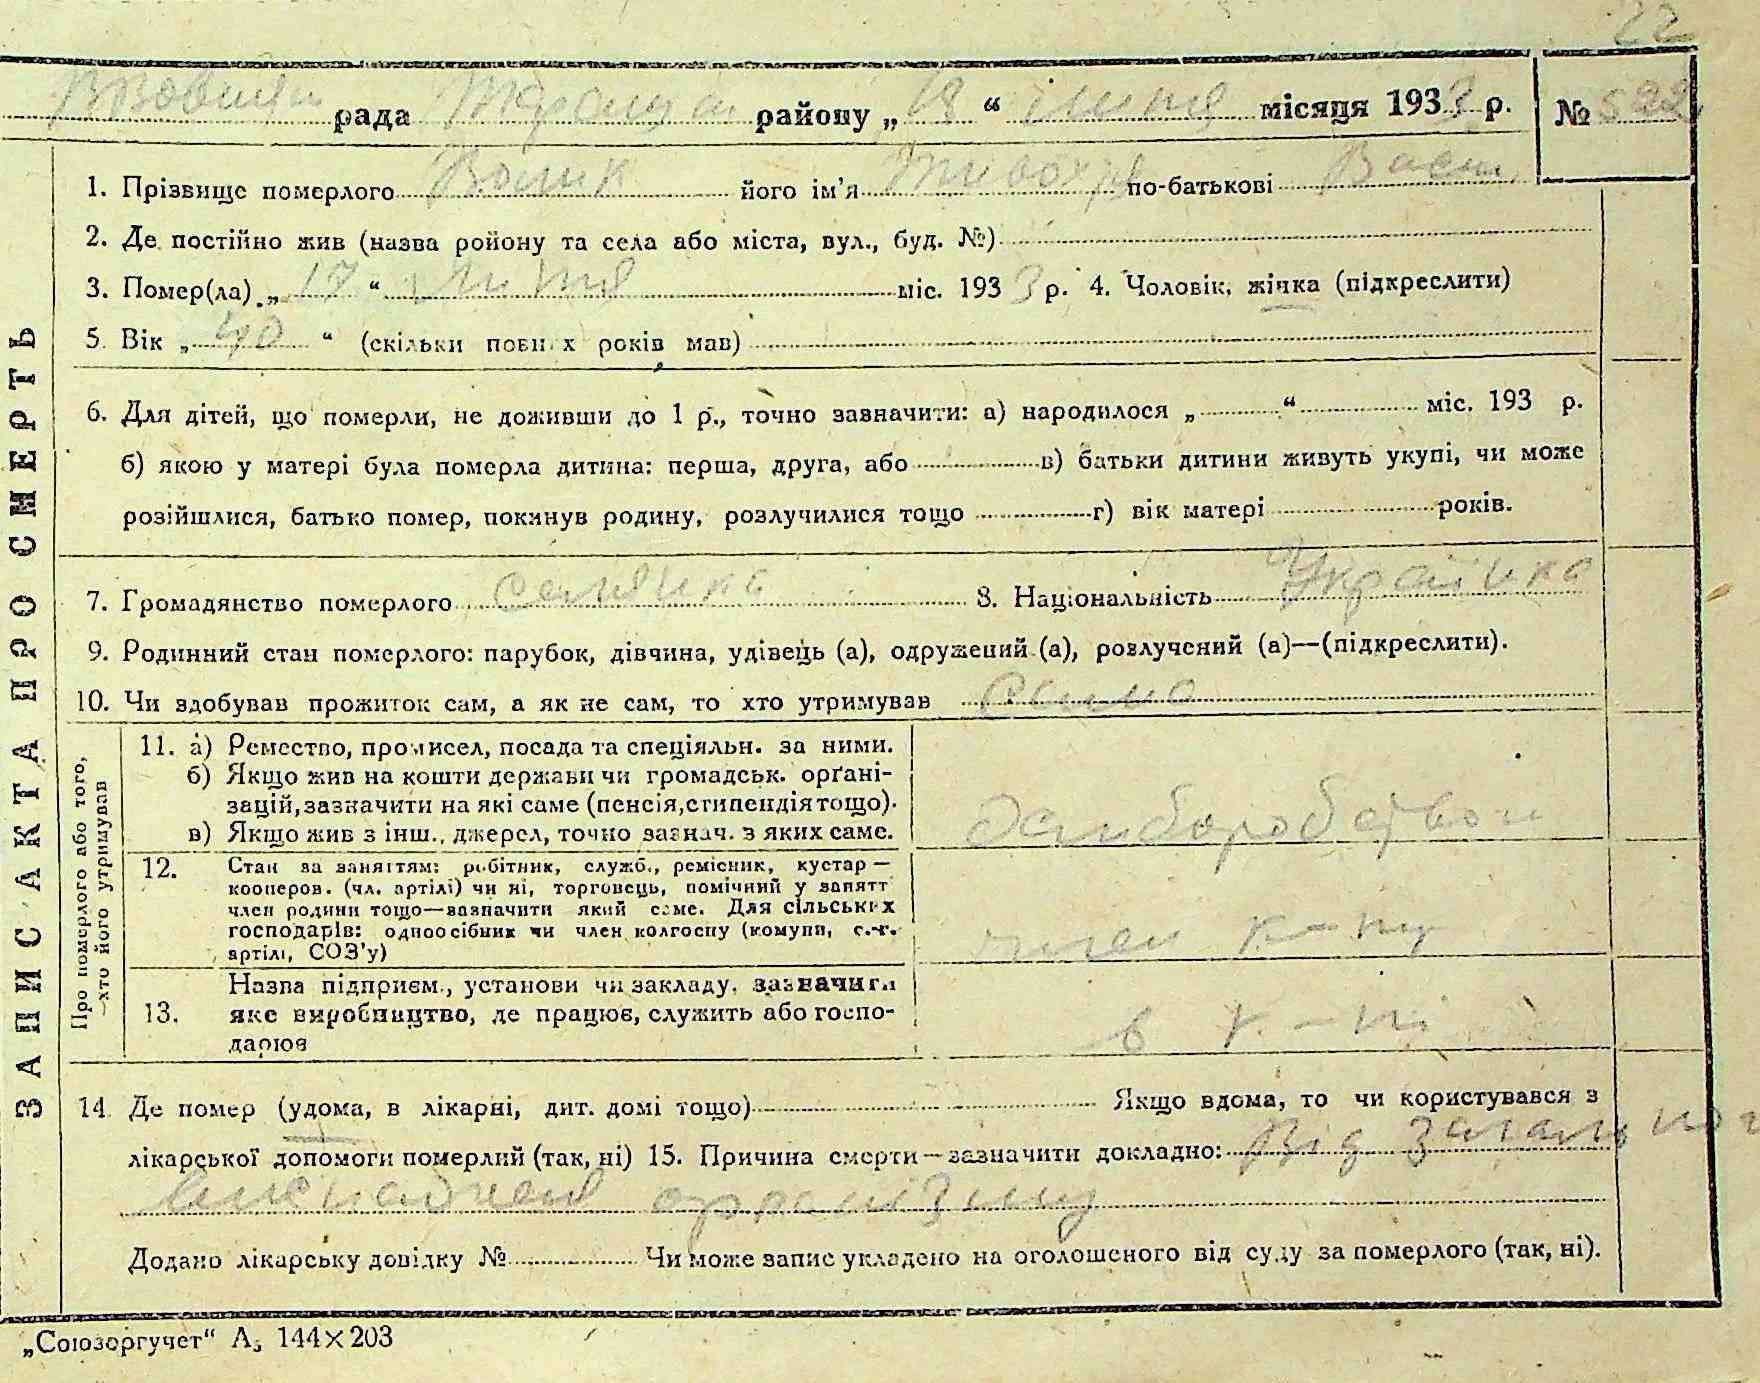 22
рада Тараща району „ 18 “ липня місяця 1933 р. № 522
ЗАПИС АКТА ПРО СМЕРТЬ
1. Прізвище померлого Волик його ім'я по-батькові Васил.
2. Де постійно жив (назва ройону та села або міста, вул., буд. №)
3. Помер(ла) „ 17 “ липня міс. 1933 р. 4. Чоловік, жінка (підкреслити)
5. Вік „ 40 “ (скільки повних років мав)
6. Для дітей, що померли, не доживши до 1 р., точно зазначити: а) народилося „ “ міс. 193 р.
б) якою у матері була померла дитина: перша, друга, або в) батьки дитини живуть укупі, чи може
розійшлися, батько помер, покинув родину, розлучилися тощо г) вік матері років.
7. Громадянство померлого селянка 8. Національність Українка
9. Родинний стан померлого: парубок, дівчина, удівець (а), одружений (а), розлучений (а)—(підкреслити).
10. Чи здобував прожиток сам, а як не сам, то хто утримував сама
Про померлого або того,
—хто його утримував
11. а) Ремество, промисел, посада та спеціяльн. за ними.
б) Якщо жив на кошти держави чи громадськ. орґані-
зацій, зазначити на які саме (пенсія, стипендія тощо).
в) Якщо жив з інш., джерел, точно зазнач. з яких саме.
12. Стан за заняттям: робітник, служб., ремісник, кустар —
кооперов. (чл. артілі) чи ні, торговець, помічний у занятт
член родини тощо—зазначити який саме. Для сільських
господарів: одноосібник чи член колгоспу (комуни, с.-г.
артілі, СОЗ'у)
член к-пу
13. Назва підприєм., установи чи закладу, зазначити
яке виробництво, де працює, служить або госпо-
дарює
в к-пі
14. Де помер (удома, в лікарні, дит. домі тощо) Якщо вдома, то чи користувався з
лікарської допомоги померлий (так, ні) 15. Причина смерти—зазначити докладно: Від загального
організму
Додано лікарську довідку № Чи може запис укладено на оголошеного від суду за померлого (так, ні).
„Союзоргучет“ А5 144×203